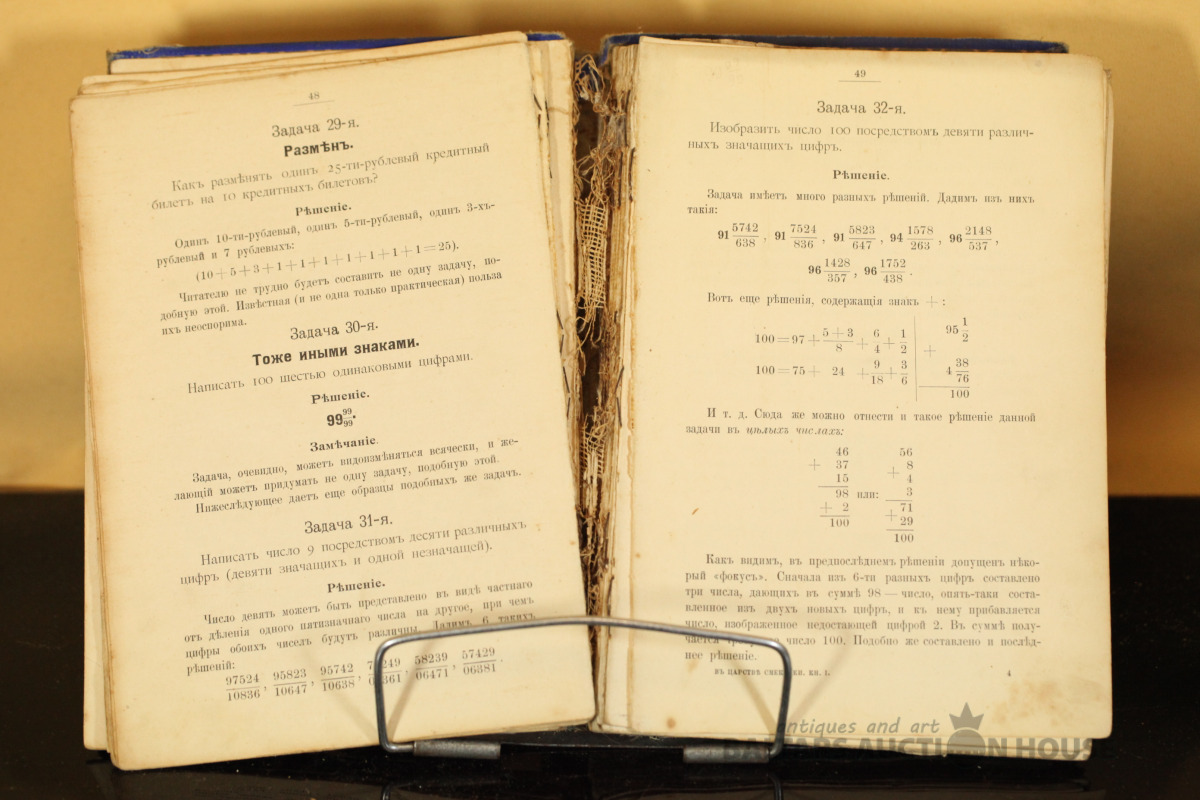 48
Задача 29-я.
Размѣнъ.
Какъ размѣнять одинъ 25-ти-рублевый кредитный
билетъ на 10 кредитныхъ билетовъ?
Рѣшеніе.
Одинъ 10-ти-рублевый, одинъ 5-ти-рублевый, одинъ 3-хъ-
рублевый и 7 рублевыхъ:
(10+5+3+1+1+1+1+1+1+1=25).
Читателю не трудно будетъ составить не одну задачу, по-
добную этой. Извѣстная (и не одна только практическая) польза
ихъ неоспорима.
Задача 30-я.
Тоже иными знаками.
Написать 100 шестью одинаковыми цифрами.
Рѣшеніе.
99 99/99.
Замѣчаніе.
Задача, очевидно, можетъ видоизмѣняться всячески, и же-
лающій можетъ придумать не одну задачу, подобную этой.
Нижеслѣдующее даетъ еще образцы подобныхъ же задачъ.
Задача 31-я.
Написать число 9 посредствомъ десяти различныхъ
цифръ (девяти значащихъ и одной незначащей).
Рѣшеніе.
Число девять можетъ быть представлено въ видѣ частнаго
отъ дѣленія одного пятизначнаго числа на другое, при чемъ
цифры обоихъ чиселъ будутъ различны. Дадимъ 6 такихъ
рѣшеній:
97524/10836, 95823/10647, 95742/10638, 58239/06471, 57429/06381.
49
Задача 32-я.
Изобразить число 100 посредствомъ девяти различ-
ныхъ значащихъ цифръ.
Рѣшеніе.
Задача имѣетъ много разныхъ рѣшеній. Дадимъ изъ нихъ
такія:
91 5742/638, 91 7524/836, 91 5823/647, 94 1578/263, 96 2148/537,
96 1428/357, 96 1752/438.
Вотъ еще рѣшенія, содержащія знакъ +:
100=97+ 5+3/8 + 6/4 + 1/2
100=75+ 24 + 9/18 + 3/6
95 1/2
+
4 38/76
100
И т. д. Сюда же можно отнести и такое рѣшеніе данной
задачи въ цѣлыхъ числахъ:
46 56
+ 37 + 8
15 4
98 или: 3
+ 2 71
100 + 29
100
Какъ видимъ, въ предпослѣднемъ рѣшеніи допущенъ нѣко-
рый «фокусъ». Сначала изъ 6-ти разныхъ цифръ составлено
три числа, дающихъ въ суммѣ 98 — число, опять-таки соста-
вленное изъ двухъ новыхъ цифръ, и къ нему прибавляется
число, изображенное недостающей цифрой 2. Въ суммѣ полу-
чается число 100. Подобно же составлено и послѣд-
нее рѣшеніе.
ВЪ ЦАРСТВѢ СМЕКАЛКИ. КН. I. 4
antiques and art
AUCTION HOUSE